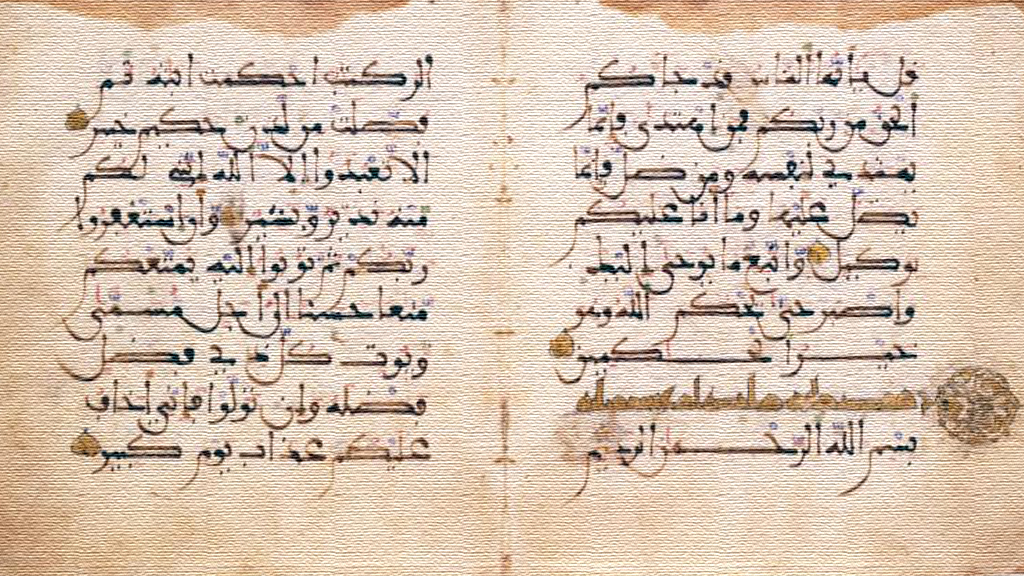 قل يأيها الناس قد جاكم
الحق من ربكم فمن اهتدى فإنما
يهتدي لنفسه ومن ضل فإنما
يضل عليها وما أنا عليكم
بوكيل واتبع ما يوحى إليك
واصبر حتى يحكم الله وهو
خير الحكمين
بسم الله الرحمن الرحيم
الر كتب احكمت ايته ثم
فصلت من لدن حكيم خبير
الا تعبدوا الا الله انني لكم
منه نذير وبشير وان استغفروا
ربكم ثم توبوا اليه يمتعكم
متعا حسنا الى اجل مسمى
ويوت كل ذي فضل
فضله وان تولوا فإني اخاف
عليكم عذاب يوم كبير